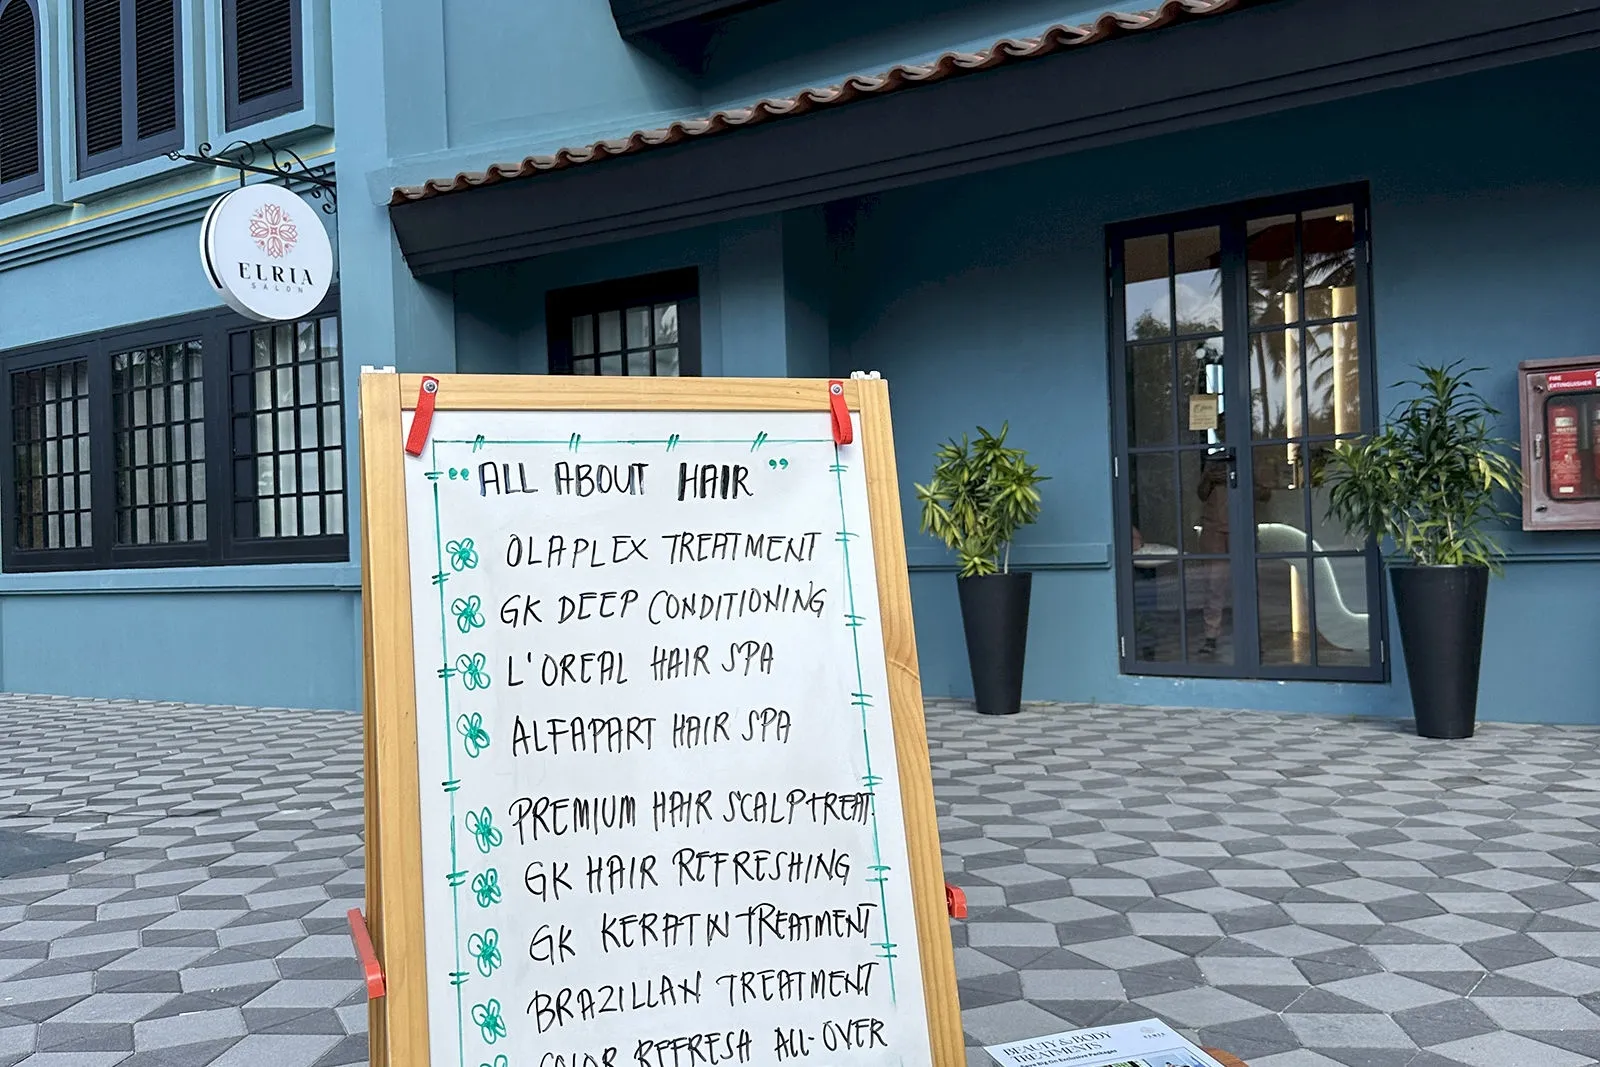 ELRIA
SALON
"ALL ABOUT HAIR"
OLAPLEX TREATMENT
GK DEEP CONDITIONING
L'OREAL HAIR SPA
ALFAPART HAIR SPA
PREMIUM HAIR SCALP TREAT.
GK HAIR REFRESHING
GK KERATIN TREATMENT
BRAZILLAN TREATMENT
COLOR REFRESH ALL-OVER
FIRE
EXTINGUISHER
BEAUTY & BODY
TREATMENTS
Save Big On Exclusive Packages
ELRIA